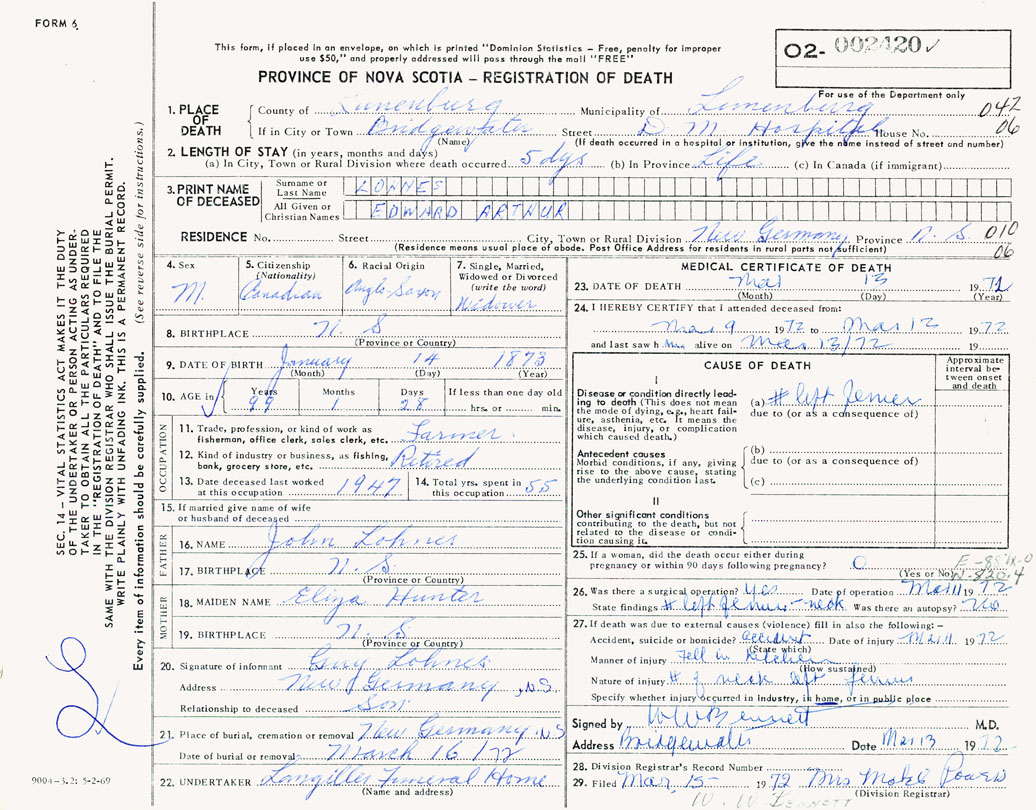 FORM 6.
This form, if placed in an envelope, on which is printed "Dominion Statistics – Free, penalty for improper
use $50," and properly addressed will pass through the mail "FREE"
PROVINCE OF NOVA SCOTIA – REGISTRATION OF DEATH
O2- 002420 ✓
For use of the Department only
1. PLACE OF DEATH County of Lunenburg Municipality of Lunenburg 042
If in City or Town Bridgewater Street D. M. Hospital House No. 06
(Name) (If death occurred in a hospital or institution, give the name instead of street and number)
2. LENGTH OF STAY (in years, months and days)
(a) In City, Town or Rural Division where death occurred 5 dys (b) In Province Life (c) In Canada (if immigrant)
3. PRINT NAME OF DECEASED Surname or Last Name LOHNES
All Given or Christian Names EDWARD ARTHUR
RESIDENCE No. Street City, Town or Rural Division New Germany Province N. S. 010
(Residence means usual place of abode. Post Office Address for residents in rural parts not sufficient) 06
4. Sex M.
5. Citizenship (Nationality) Canadian
6. Racial Origin Anglo-Saxon
7. Single, Married, Widowed or Divorced (write the word) Widower
8. BIRTHPLACE N. S
(Province or Country)
9. DATE OF BIRTH January 14 1873
(Month) (Day) (Year)
10. AGE in Years 99 Months 1 Days 28 If less than one day old
hrs. or min.
OCCUPATION
11. Trade, profession, or kind of work as
fisherman, office clerk, sales clerk, etc. Farmer
12. Kind of industry or business, as fishing,
bank, grocery store, etc. Retired
13. Date deceased last worked
at this occupation 1947
14. Total yrs. spent in
this occupation 55
15. If married give name of wife
or husband of deceased
FATHER
16. NAME John Lohnes
17. BIRTHPLACE N. S.
(Province or Country)
MOTHER
18. MAIDEN NAME Eliza Hunter
19. BIRTHPLACE N. S
(Province or Country)
20. Signature of informant Lohnes
Address New Germany, N.S.
Relationship to deceased Son
21. Place of burial, cremation or removal New Germany N.S
Date of burial or removal March 16/72
22. UNDERTAKER Langilles Funeral Home
(Name and address)
MEDICAL CERTIFICATE OF DEATH
23. DATE OF DEATH Mar 13 1972
(Month) (Day) (Year)
24. I HEREBY CERTIFY that I attended deceased from:
Mar 9 1972 to Mar 12 1972
and last saw him alive on Mar 13/72 19
CAUSE OF DEATH
Approximate interval between onset and death
I
Disease or condition directly leading to death (This does not mean
the mode of dying, e.g., heart failure, asthenia, etc. It means the
disease, injury, or complication
which caused death.)
(a) # left femur
due to (or as a consequence of)
Antecedent causes
Morbid conditions, if any, giving
rise to the above cause, stating
the underlying condition last.
(b)
due to (or as a consequence of)
(c)
II
Other significant conditions
contributing to the death, but not
related to the disease or condition causing it.
25. If a woman, did the death occur either during
pregnancy or within 90 days following pregnancy? O
(Yes or No) N-820.4
26. Was there a surgical operation? Yes Date of operation Mar 11 1972
State findings # left femur - neck Was there an autopsy? No
27. If death was due to external causes (violence) fill in also the following:–
Accident, suicide or homicide? accident Date of injury Mar 11 1972
(State which)
Manner of injury Fell in kitchen
(How sustained)
Nature of injury # of neck left femur
Specify whether injury occurred in industry, in home, or in public place
Signed by W W Bennett M.D.
Address Bridgewater Date Mar 13 1972
28. Division Registrar's Record Number
29. Filed Mar. 15- 1972 Mrs
(Division Registrar)
W. W BENNETT
SEC. 14 – VITAL STATISTICS ACT MAKES IT THE DUTY
OF THE UNDERTAKER OR PERSON ACTING AS UNDERTAKER TO OBTAIN ALL THE PARTICULARS REQUIRED
IN THE "REGISTRATION OF DEATH" AND TO FILE THE
SAME WITH THE DIVISION REGISTRAR WHO SHALL ISSUE THE BURIAL PERMIT.
WRITE PLAINLY WITH UNFADING INK. THIS IS A PERMANENT RECORD.
Every item of information should be carefully supplied. (See reverse side for instructions.)
9004–3.2: 5-2-69